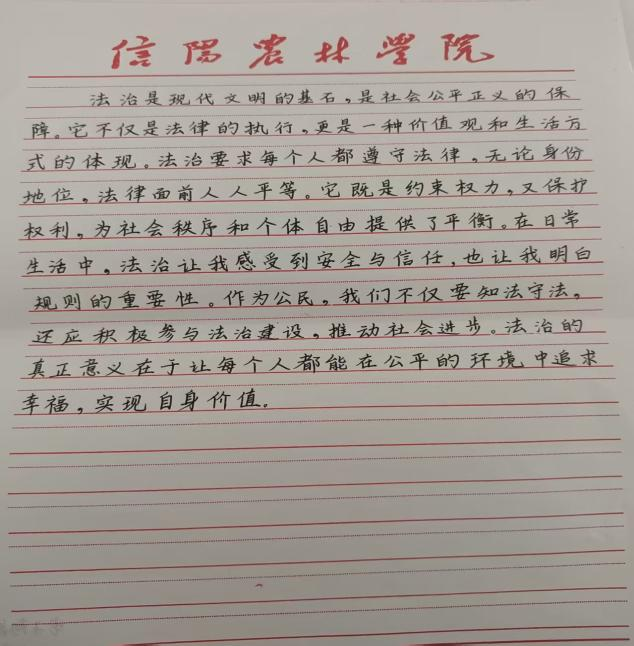 信陽农林學院
法治是现代文明的基石，是社会公平正义的保
障。它不仅是法律的执行，更是一种价值观和生活方
式的体现。法治要求每个人都遵守法律，无论身份
地位，法律面前人人平等。它既是约束权力，又保护
权利，为社会秩序和个体自由提供了平衡。在日常
生活中，法治让我感受到安全与信任，也让我明白
规则的重要性。作为公民，我们不仅要知法守法，
还应积极参与法治建设，推动社会进步。法治的
真正意义在于让每个人都能在公平的环境中追求
幸福，实现自身价值。